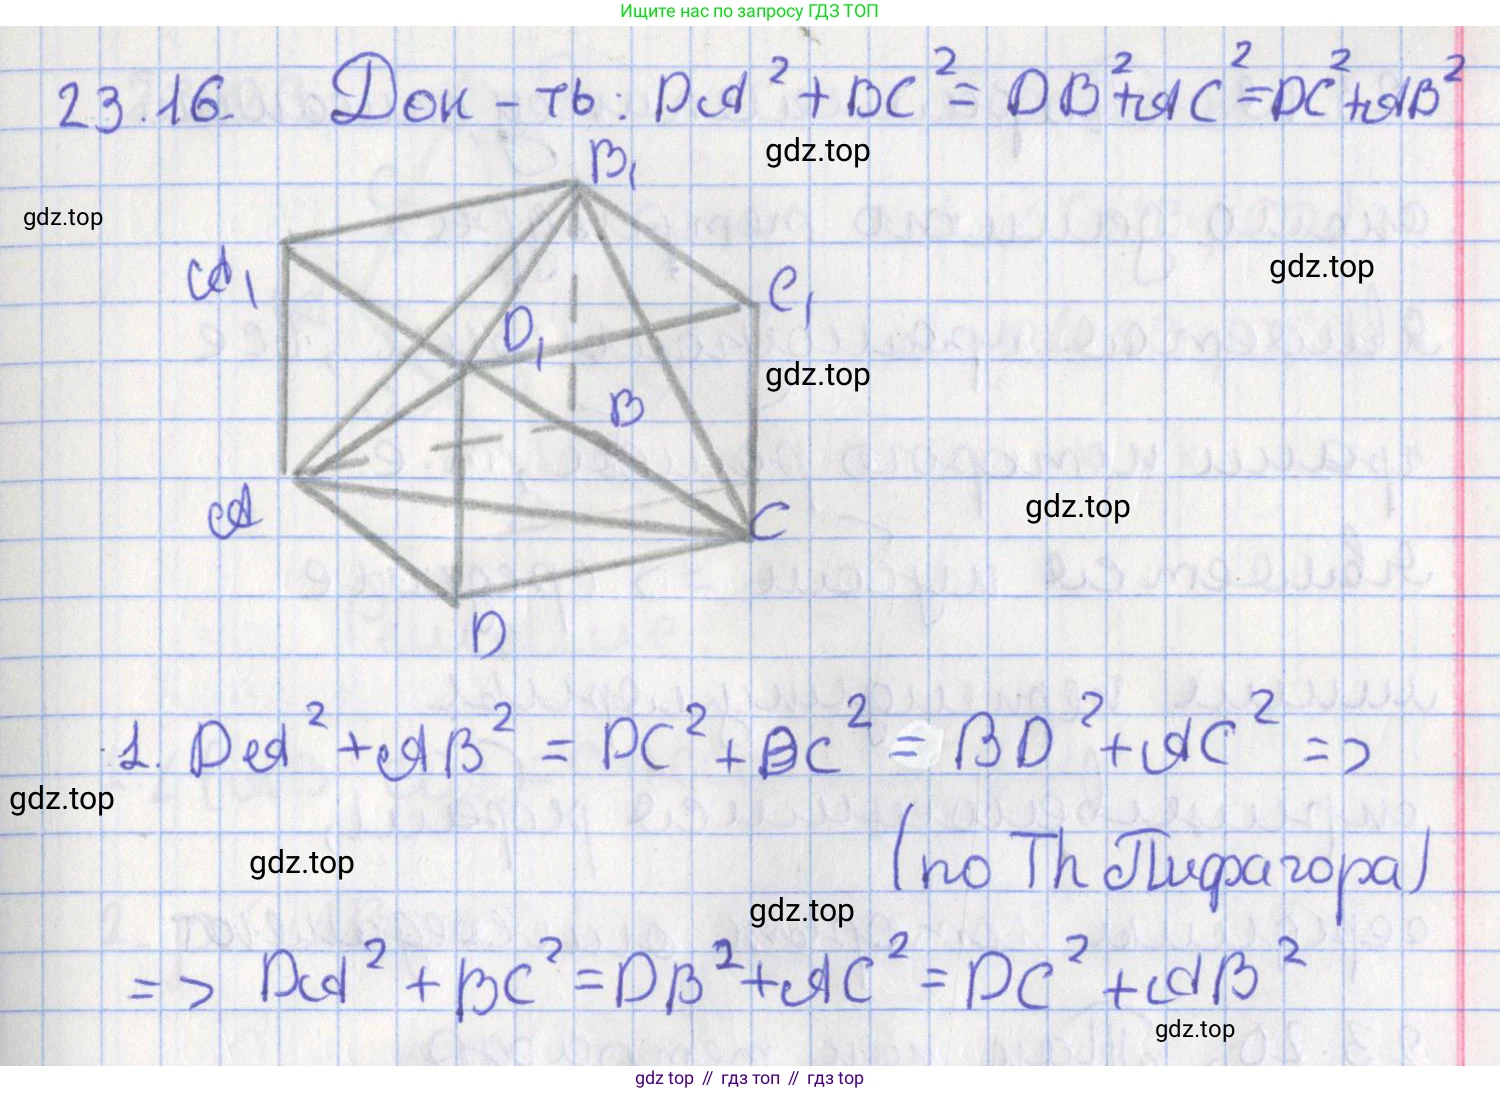 Ищите нас по запросу ГДЗ ТОП
23.16. Док-ть: DA²+BC²=DB²+AC²=DC²+AB²
gdz.top
B₁
gdz.top
gdz.top
A₁
C₁
D₁
gdz.top
B
gdz.top
A
C
D
1. DA²+AB²=DC²+BC²=BD²+AC² =>
gdz.top
(по Th Пифагора)
gdz.top
gdz.top
=> DA²+BC²=DB²+AC²=DC²+AB²
gdz.top
gdz top // гдз топ // гдз top